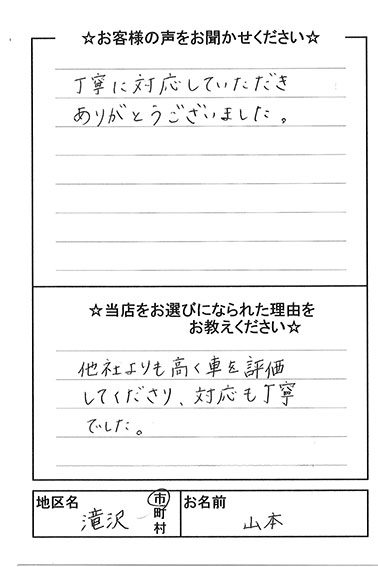 ☆お客様の声をお聞かせください☆
丁寧に対応していただき
ありがとうございました。
☆当店をお選びになられた理由を
お教えください☆
他社よりも高く車を評価
してくださり、対応も丁寧
でした。
地区名
滝沢
市
町
村
お名前
山本